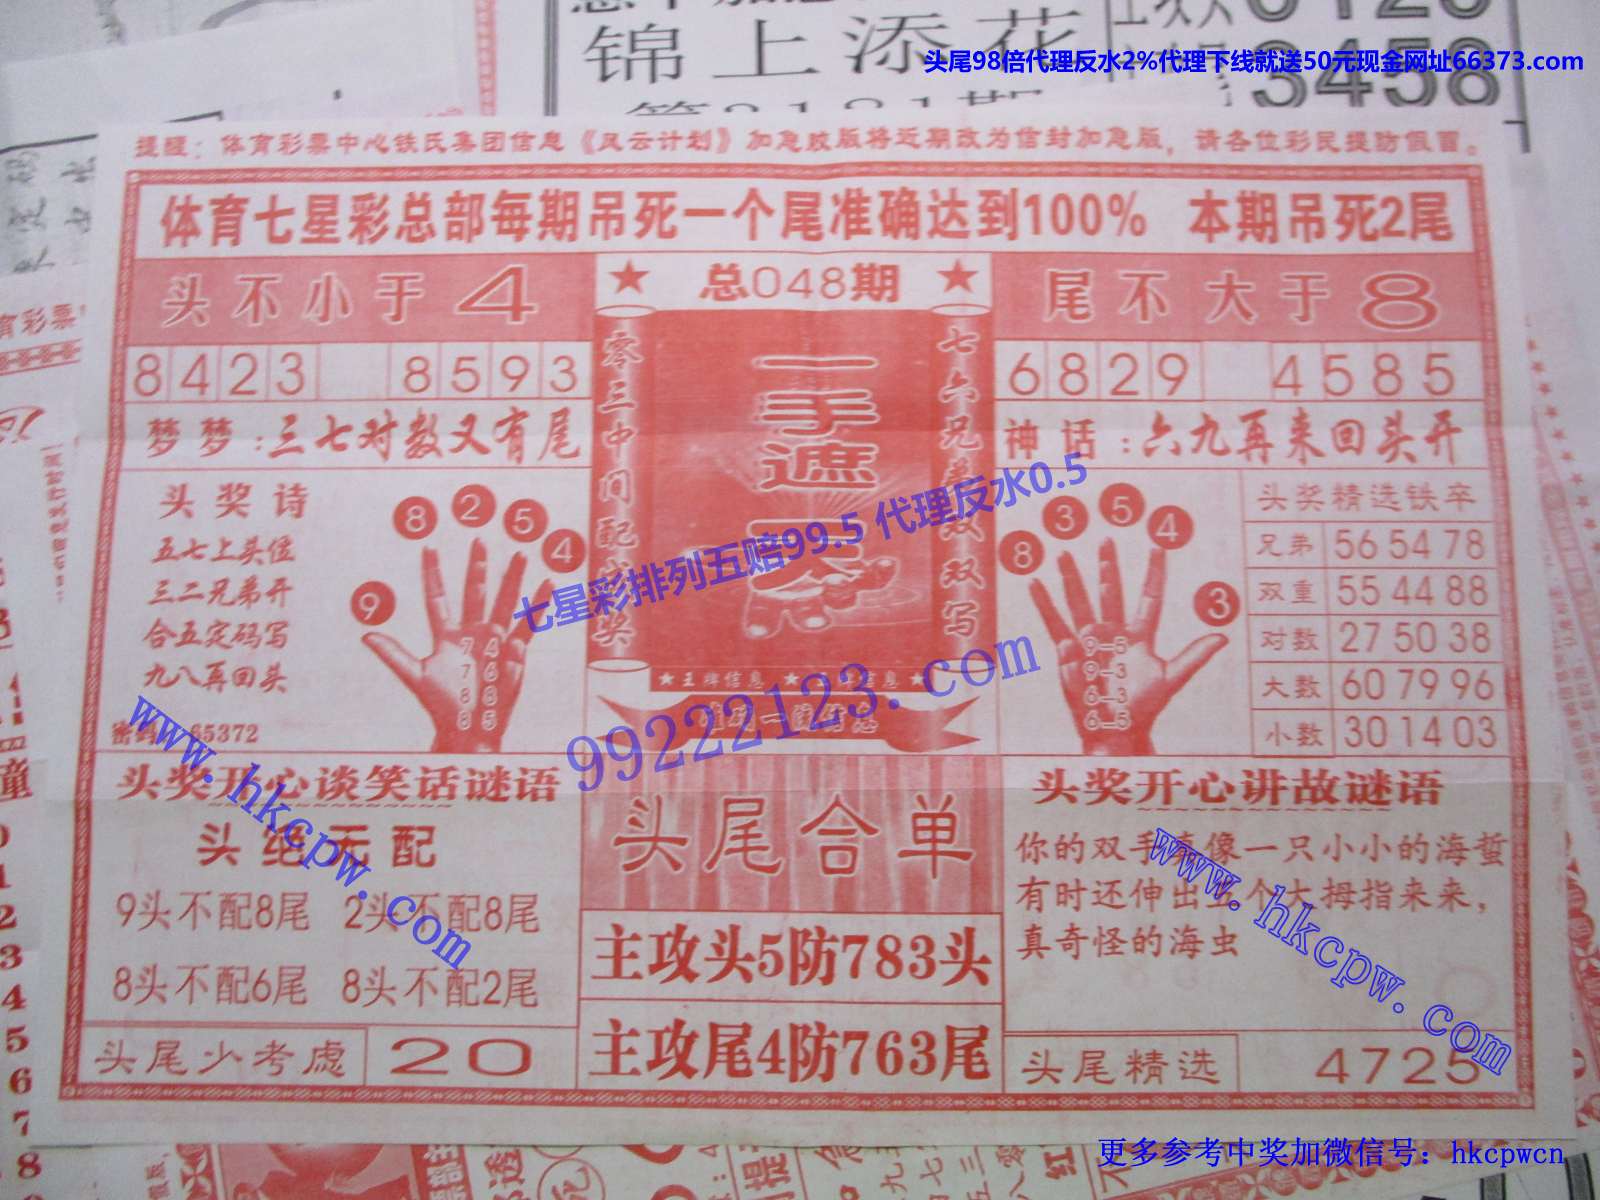 锦上添花
头尾98倍代理反水2%代理下线就送50元现金网址66373.com
3458
提醒：体育彩票中心铁氏集团信息《风云计划》加急胶版将近期改为信封加急版，请各位彩民提防假冒。
体育七星彩总部每期吊死一个尾准确达到100% 本期吊死2尾
头不小于4
★ 总048期 ★
尾不大于8
8423 8593
6829 4585
梦梦:三七对数又有尾
神话:六九再来回头开
零三中间配
一手遮天
七六兄
双写
七星彩排列五赔99.5 代理反水0.5
头奖诗
五七上头位
三二兄弟开
合五定码写
九八再回头
65372
8 2 5 4 9
7 4
7 6
8 8
8 5
8 3 5 4 3
9-5
9-3
6-3
6-5
头奖精选铁卒
兄弟 56 54 78
双重 55 44 88
对数 27 50 38
大数 60 79 96
小数 30 14 03
99222123.com
www.hkcpw.com
头奖开心谈笑话谜语
头绝无配
9头不配8尾 2头不配8尾
8头不配6尾 8头不配2尾
头尾少考虑 20
头尾合单
主攻头5防783头
主攻尾4防763尾
头奖开心讲故谜语
你的双手真像一只小小的海蜇
有时还伸出五个大拇指来来，
真奇怪的海虫
www.hkcpw.com
头尾精选 4725
更多参考中奖加微信号：hkcpwcn